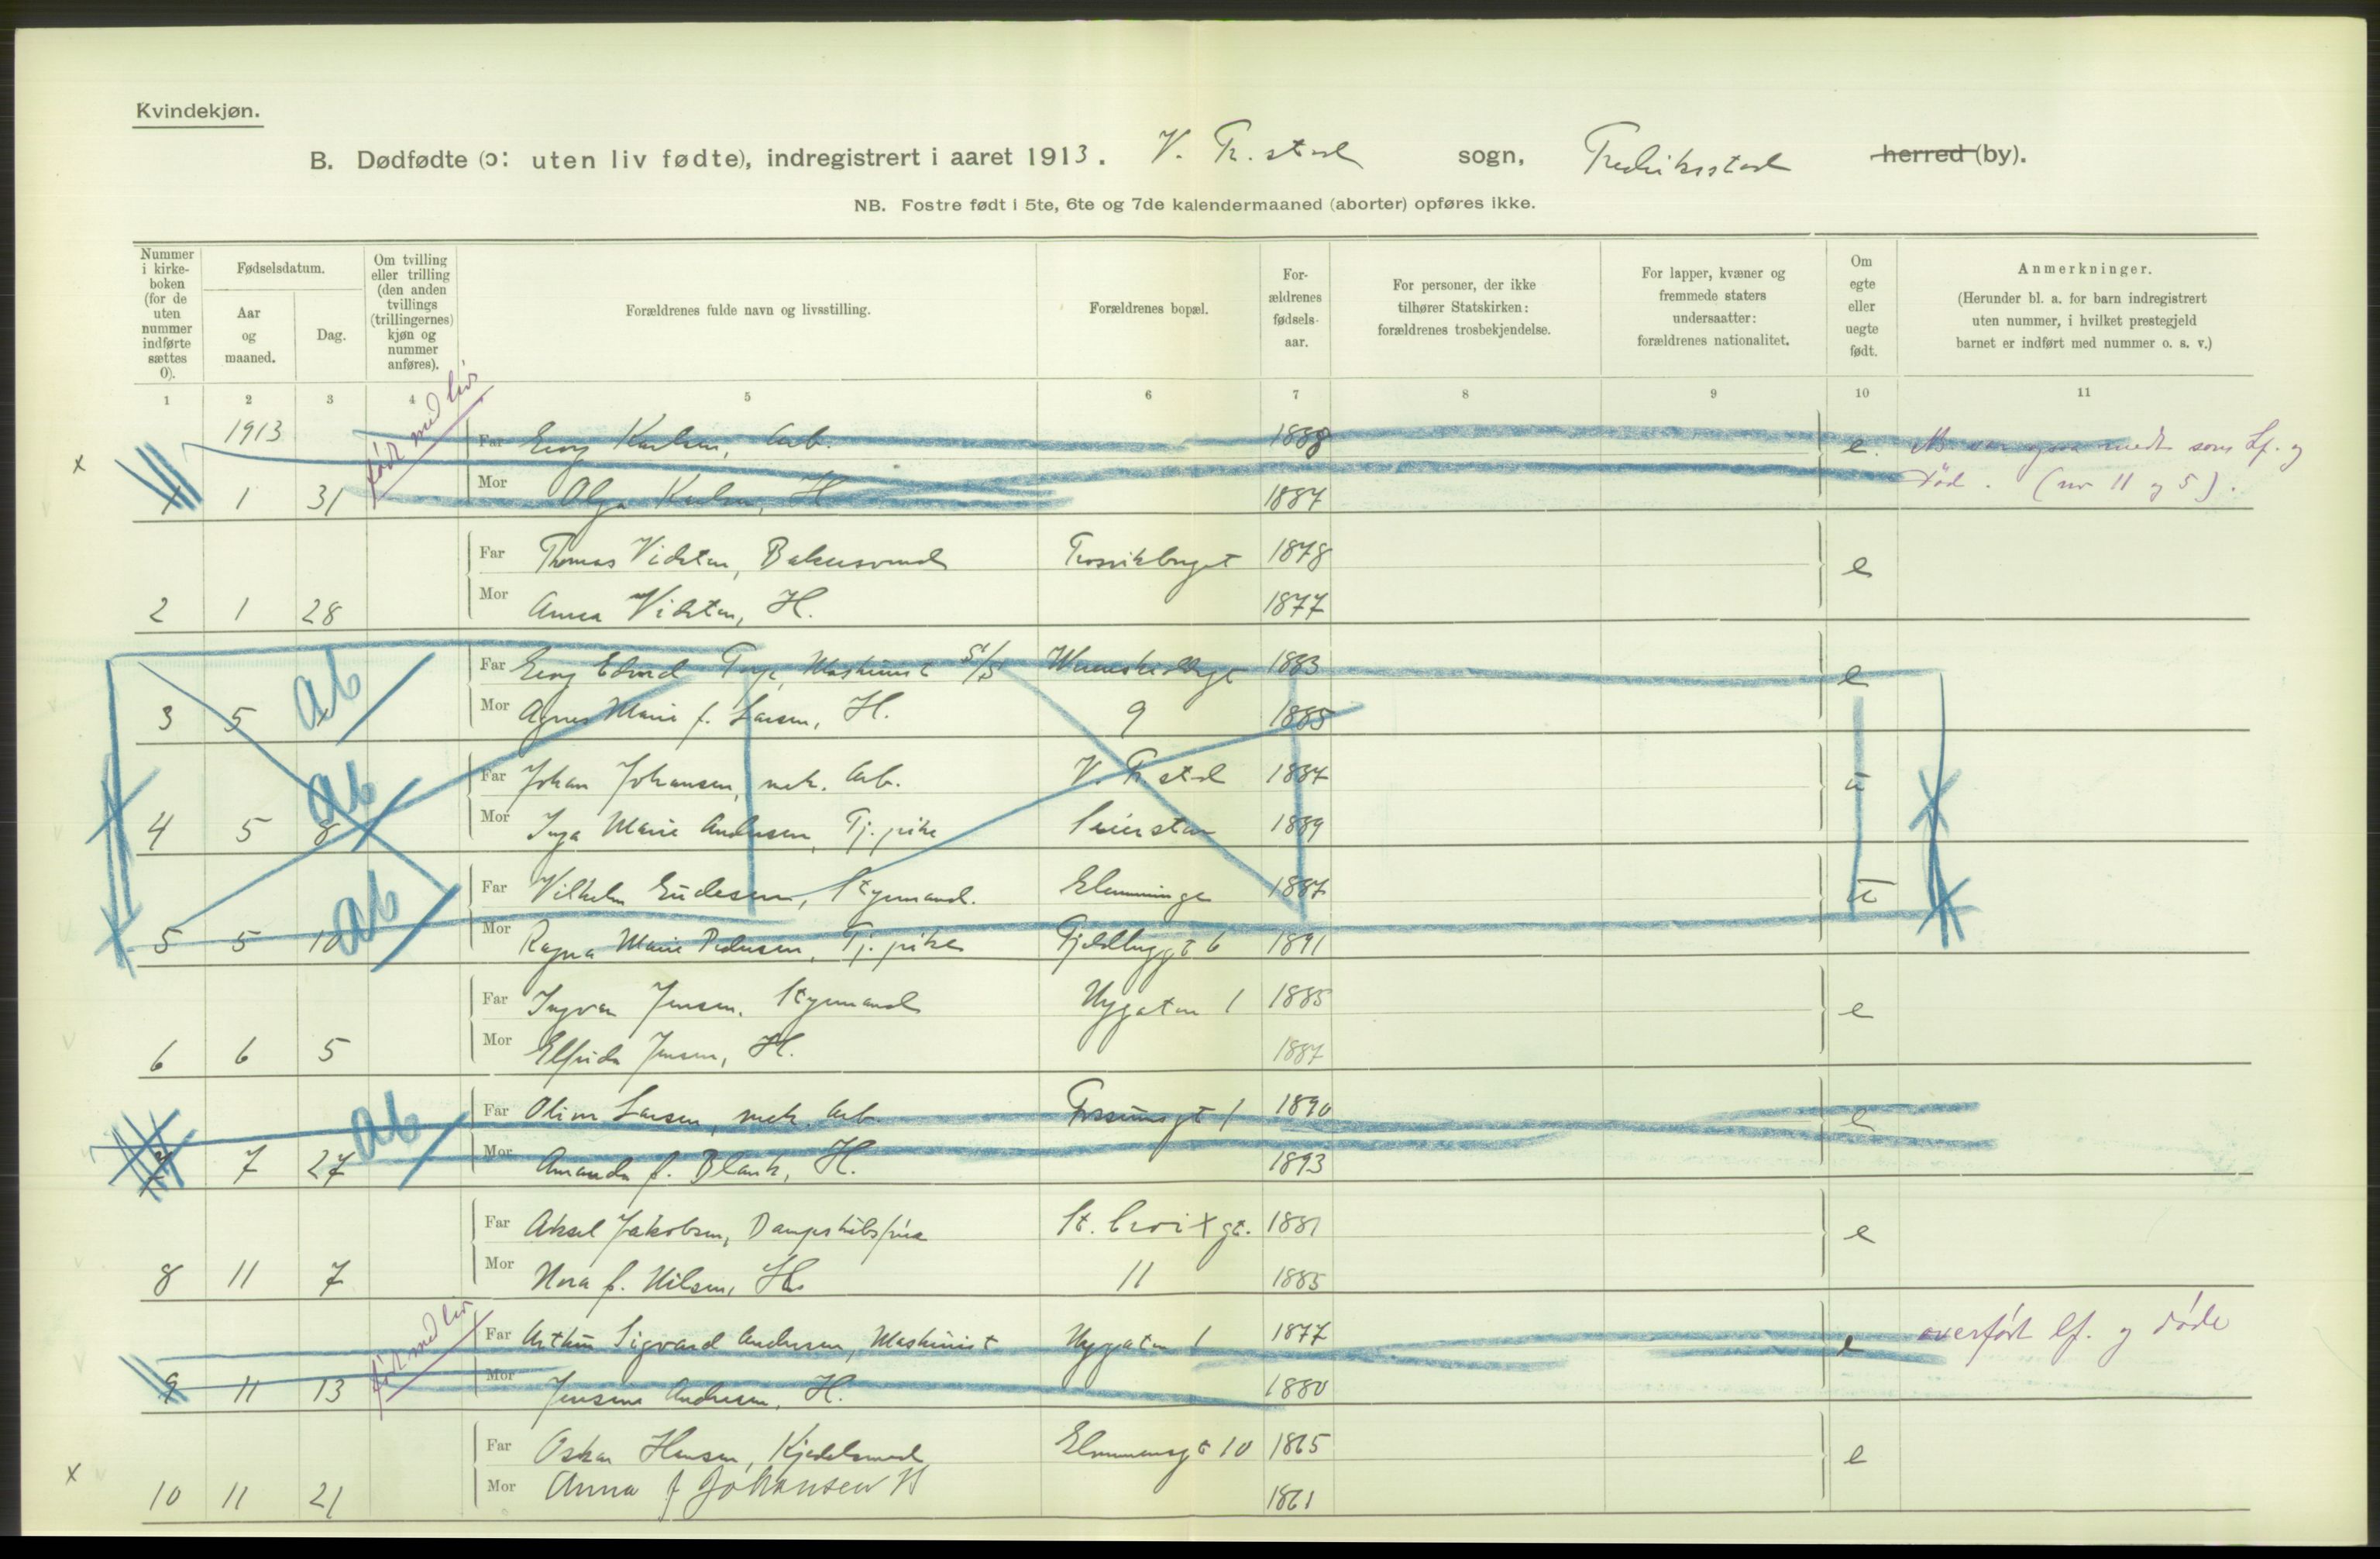 Kvindekjøn.
B. Dødfødte (ɔ: uten liv fødte), indregistrert i aaret 1913. V. Fr.stad sogn, Fredriksstad herred (by).
NB. Fostre født i 5te, 6te og 7de kalendermaaned (aborter) opføres ikke.
Nummer i kirke-boken (for de uten nummer indførte sættes 0).
Fødselsdatum.
Aar og maaned.
Dag.
Om tvilling eller trilling (den anden tvillings (trillingernes) kjøn og nummer anføres).
Forældrenes fulde navn og livsstilling.
Forældrenes bopæl.
For-ældrenes fødsels-aar.
For personer, der ikke tilhører Statskirken: forældrenes trosbekjendelse.
For lapper, kvæner og fremmede staters undersaatter: forældrenes nationalitet.
Om egte eller uegte født.
Anmerkninger.
(Herunder bl. a. for barn indregistrert uten nummer, i hvilket prestegjeld barnet er indført med nummer o. s. v.)
1 2 3 4 5 6 7 8 9 10 11
1913 født med liv Far Georg Karlsen, Arb. 1888 e. som Lf. og
x 1 1 31 Mor Olga Karlsen, H 1887 død. (nr 11 og 5).
Far Thomas Vidsten, Bakersvend Trosvikbryget 1878 e
2 1 28 Mor Anna Vidsten, H. 1877
Far Georg Edvard Torp, Maskinist S/S 1883 e
3 5 ab Mor Agnes Marie f. Larsen, H. 9 1885
Far Johan Johansen, mek. Arb. V. Fr.stad 1887 u
4 5 8 ab Mor Inga Marie Andersen, Tj.pike 1889
Far Vilhelm Styrmand. 1887 u
5 5 10 ab Mor Ragna Marie Pedersen, Tj.pike Fjeldbryggt 6 1891
Far Ingvar Jensen, Styrmand Nygaten 1 1885 e
6 6 5 Mor Elfrida Jensen, H. 1887
Far Oliver Larsen, mek. Arb. Fossumsgt 1 1890 e
7 7 27 ab Mor Amanda f. Blank, H. 1893
Far Aksel Jakobsen, St. Croix gt. 1881 e
8 11 7 Mor Nora f. Nilsen, H. 11 1885
født med liv Far Arthur Sigvard Andersen, Maskinist Nygaten 1 1877 e overført lf. og døde
9 11 13 Mor Jensine Andersen, H. 1880
Far Oskar Hansen, Kjedelsmed 10 1865 e
x 10 11 21 Mor Anna f Johansen H 1861